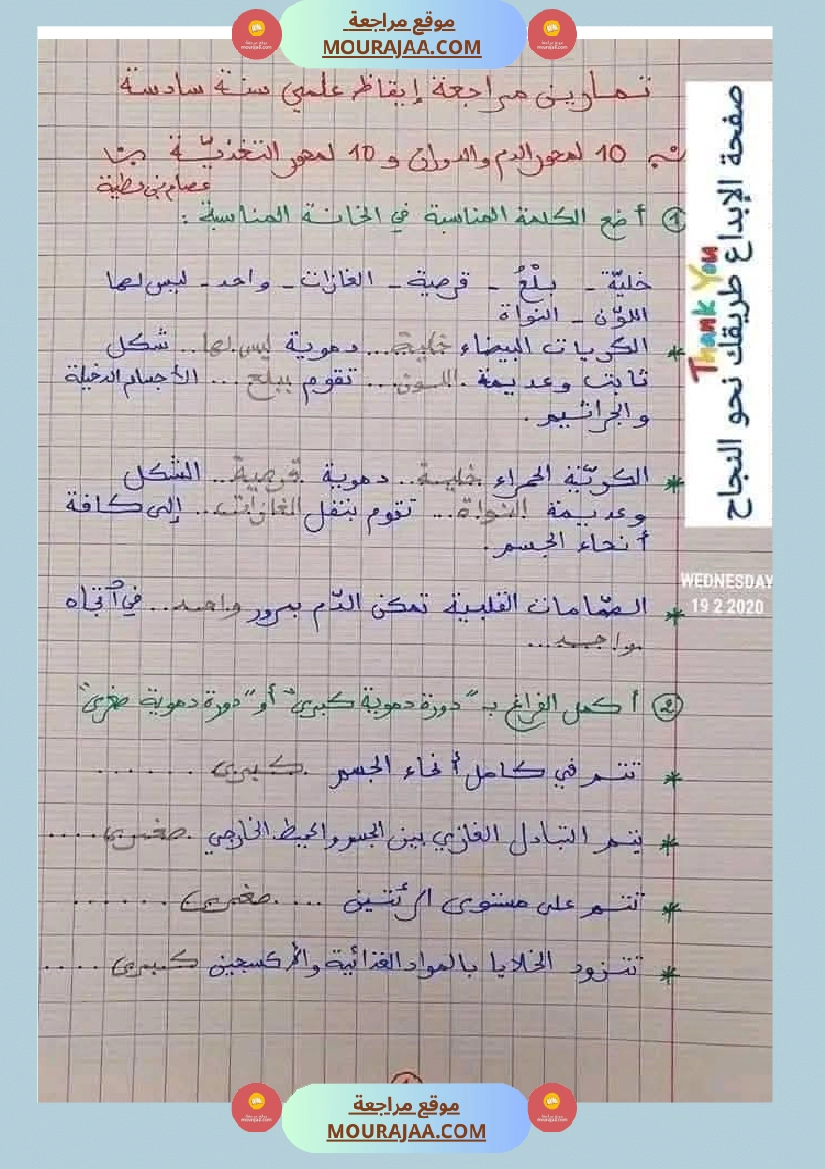 موقع مراجعة
MOURAJAA.COM
تمارين مراجعة إيقاظ علمي سنة سادسة
10 لمحور الدم والدوران و 10 لمحور التغذيّة
عصام بن وطية
① أضع الكلمة المناسبة في الخانة المناسبة :
خليّة - بلْعُ - قرصية - الغازات - واحد - ليس لها
اللّون - النواة
* الكريات البيضاء خلية... دموية ليس لها.. شكل
ثابت وعديمة .اللون... تقوم ببلع ... الأجسام الدخيلة
والجراثيم .
* الكريّة الحمراء .خلية.. دموية .قرصية.. الشكل
وعديمة النواة... تقوم بنقل الغازات... إلى كافة
أنحاء الجسم .
* الصّمامات القلبية تمكن الدّم بمرور واحد... في اتجاه
.واحد...
② أكمل الفراغ بـ "دورة دموية كبرى" أو "دورة دموية صغرى"
* تتم في كامل أنحاء الجسم .كبرى. . . . . . .
* يتم التبادل الغازي بين الجسم والمحيط الخارجي .صغرى....
* تتم على مستوى الرئتين ....صغرى. . . . . . .
* تتزود الخلايا بالمواد الغذائية والأكسجين كبرى ....
صفحة الإبداع طريقك نحو النجاح
Thank You
WEDNESDAY
19 2 2020
موقع مراجعة
MOURAJAA.COM